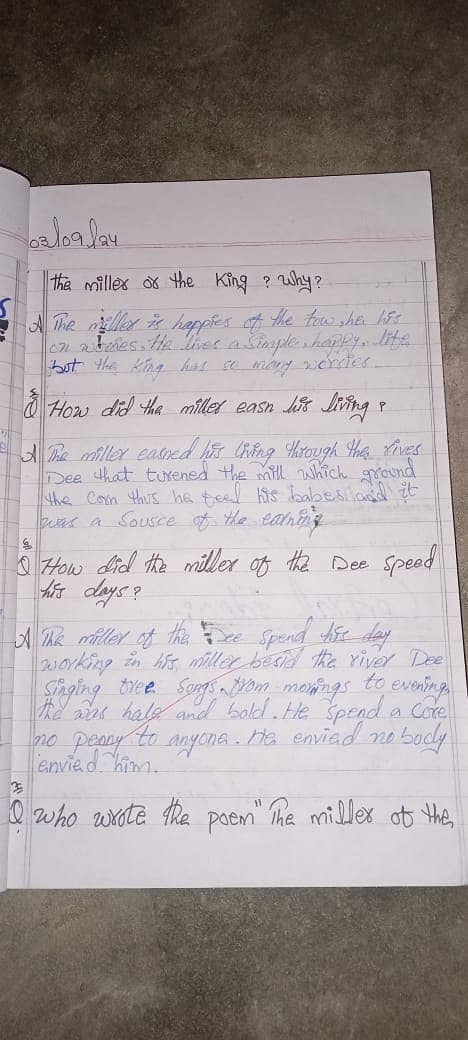 03/09/24
the miller or the King ? Why?
A The miller is happies of the tow, he his
on wories. He lives a Simple, happy, life
but the King has so many worries
Q How did the miller easn his living ?
A The miller easned his living through the rives
Dee that turened the mill which ground
the Corn thus he feed his babes and it
was a Sousce of the earning
Q How did the miller of the Dee Speed
his days?
A The miller of the Dee Spend his day
working in his miller besid the river Dee
Singing free Songs from mornings to evening
the was hale and bold. He Spend a Core
no Penny to anyone. He envied nobody
envied him.
Q Who wrote the poem" The miller of the